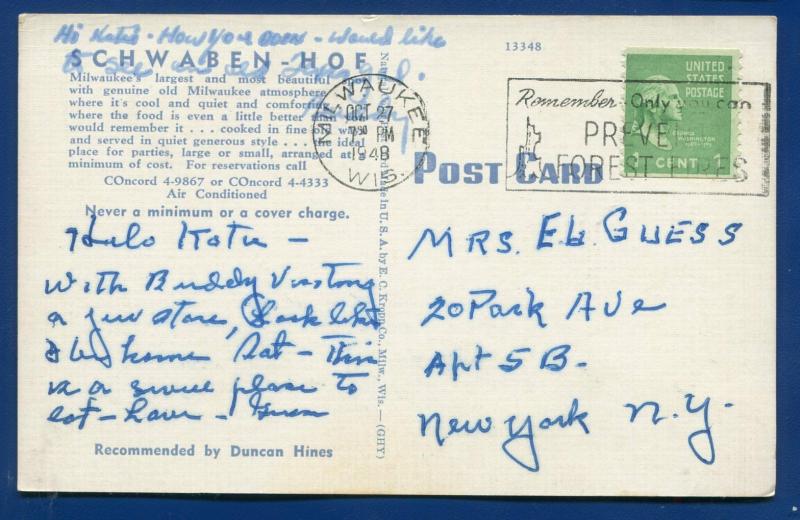 Hi Katie - How you doen - would like
to see
SCHWABEN-HOF
Milwaukee's largest and most beautiful
with genuine old Milwaukee atmosphere
where it's cool and quiet and comfortable
where the food is even a little better than
would remember it . . . cooked in fine old
and served in quiet generous style . . . the ideal
place for parties, large or small, arranged at a
minimum of cost. For reservations call
COncord 4-9867 or COncord 4-4333
Air Conditioned
Never a minimum or a cover charge.
Helo Katie -
with Buddy Visiting
a few stores, look like
a home Sat - This
is a swell place to
eat - have -
Recommended by Duncan Hines
Made in U. S. A. by E. C. Kropp Co., Milw., Wis.—(GHY)
13348
MILWAUKEE
OCT 27
7 30 PM
1948
WIS.
Remember - Only you can
PREVENT
FOREST FIRES
UNITED
STATES
POSTAGE
GEORGE
WASHINGTON
1 CENT 1
POST CARD
MRS. E.G. GUESS
20 Park Ave
Apt 5 B.
New York N.Y.